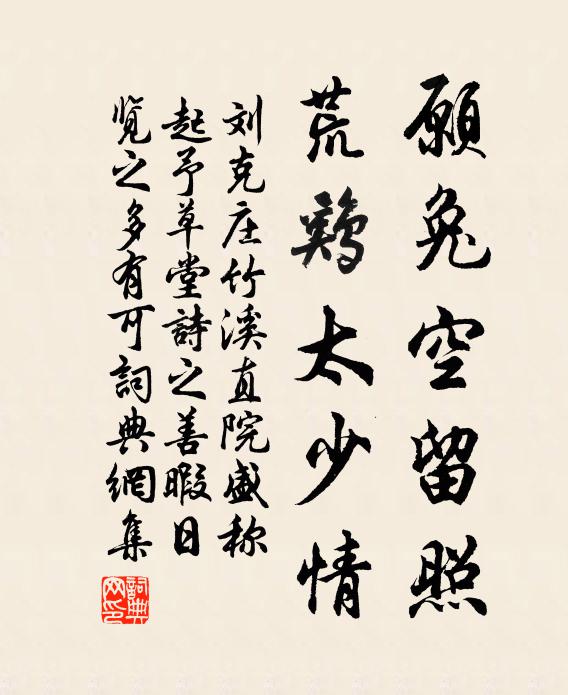 願兔空留照
荒鷄太少情
刘克庄竹溪直院盛称
起予草堂詩之善暇日
览之多有可詞典網集
詞典
网印